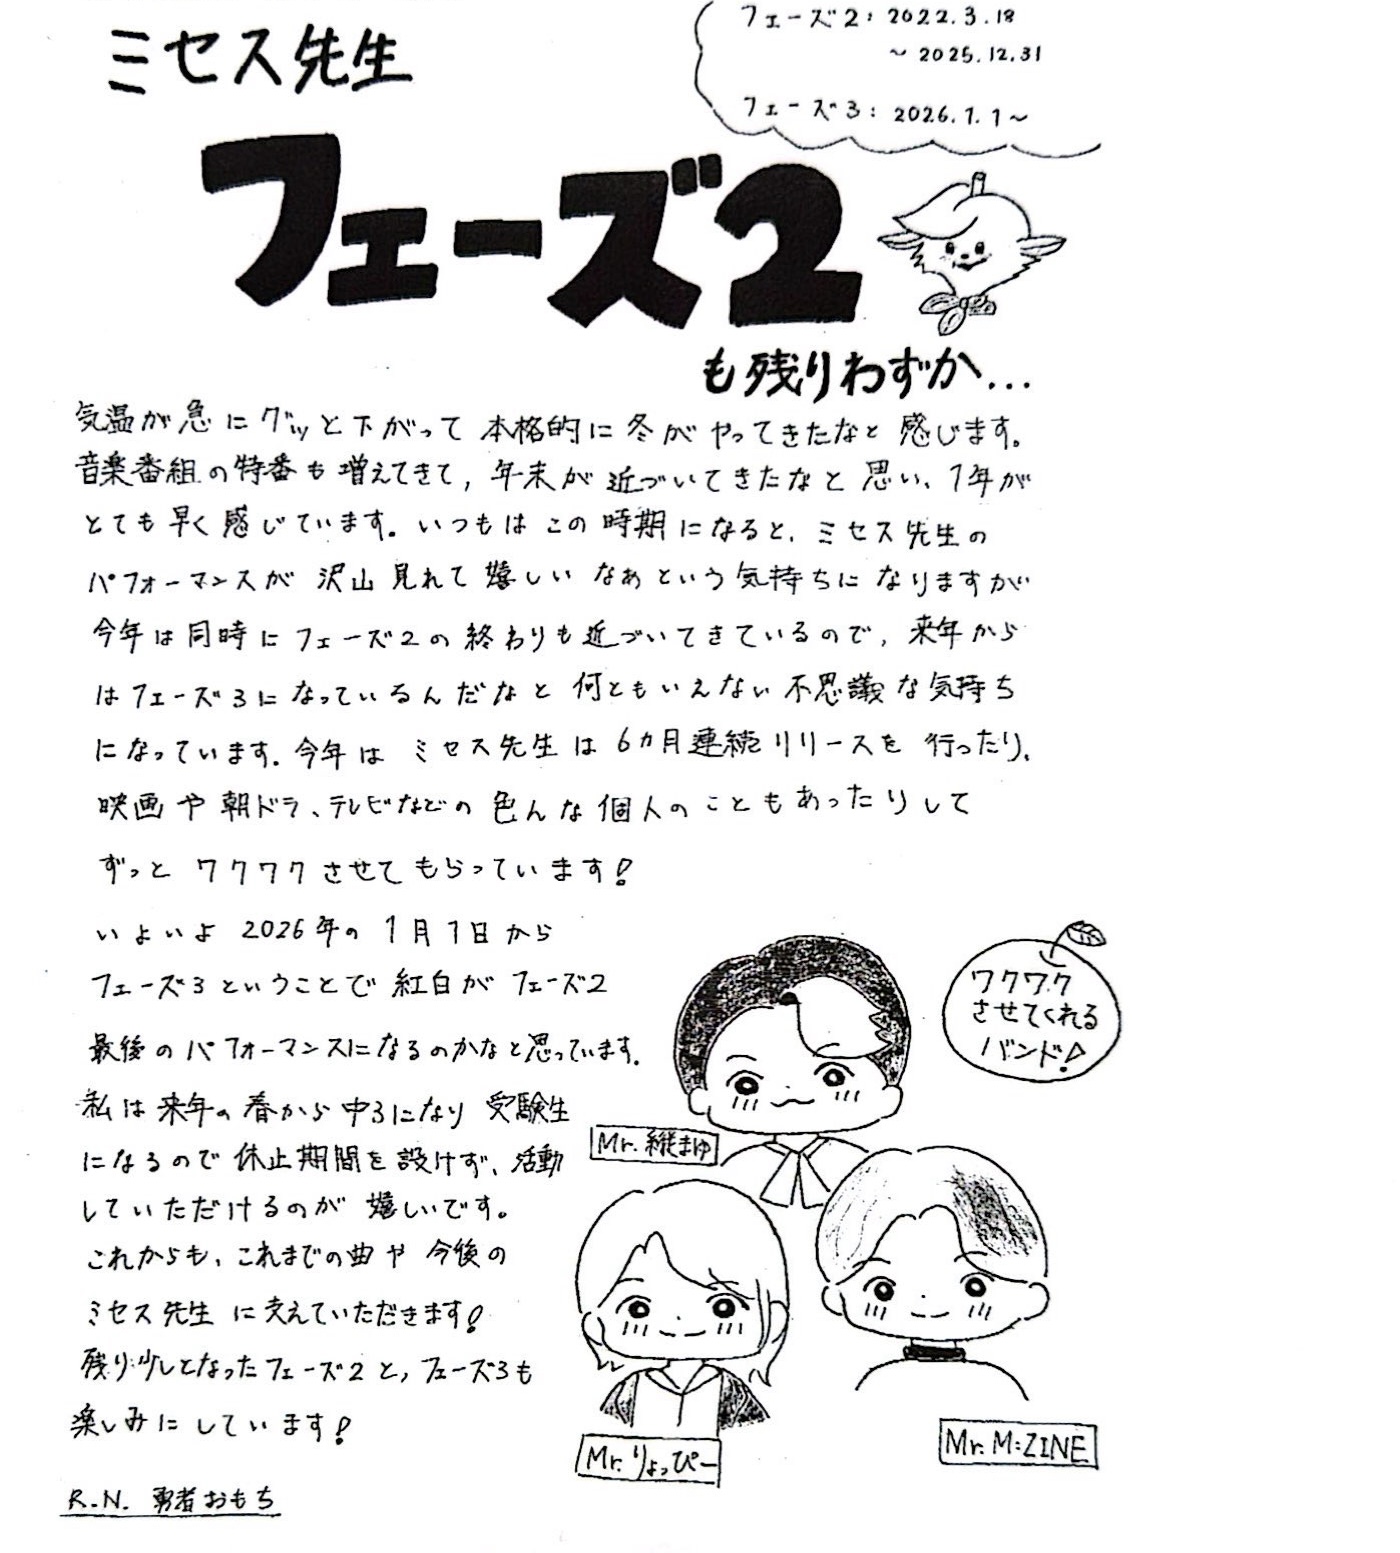 フェーズ2: 2022.3.18
~ 2025.12.31
フェーズ3: 2026.1.1~
ミセス先生
フェーズ2
も残りわずか...
気温が急にグッと下がって本格的に冬がやってきたなと感じます。
音楽番組の特番も増えてきて、年末が近づいてきたなと思い、1年が
とても早く感じています。いつもはこの時期になると、ミセス先生の
パフォーマンスが沢山見れて嬉しいなぁという気持ちになりますが
今年は同時にフェーズ2の終わりも近づいてきているので、来年から
はフェーズ3になっているんだなと何ともいえない不思議な気持ち
になっています。今年はミセス先生は6カ月連続リリースを行ったり、
映画や朝ドラ、テレビなどの色んな個人のこともあったりして
ずっとワクワクさせてもらっています!
いよいよ2026年の1月1日から
フェーズ3ということで紅白がフェーズ2
最後のパフォーマンスになるのかなと思っています。
私は来年の春から中3になり受験生
になるので休止期間を設けず、活動
していただけるのが嬉しいです。
これからも、これまでの曲や今後の
ミセス先生に支えていただきます!
残り少しとなったフェーズ2と、フェーズ3も
楽しみにしています!
R.N. 勇者おもち
ワクワク
させてくれる
バンド!
Mr.縦まゆ
Mr.りょっぴー
Mr.M:ZINE